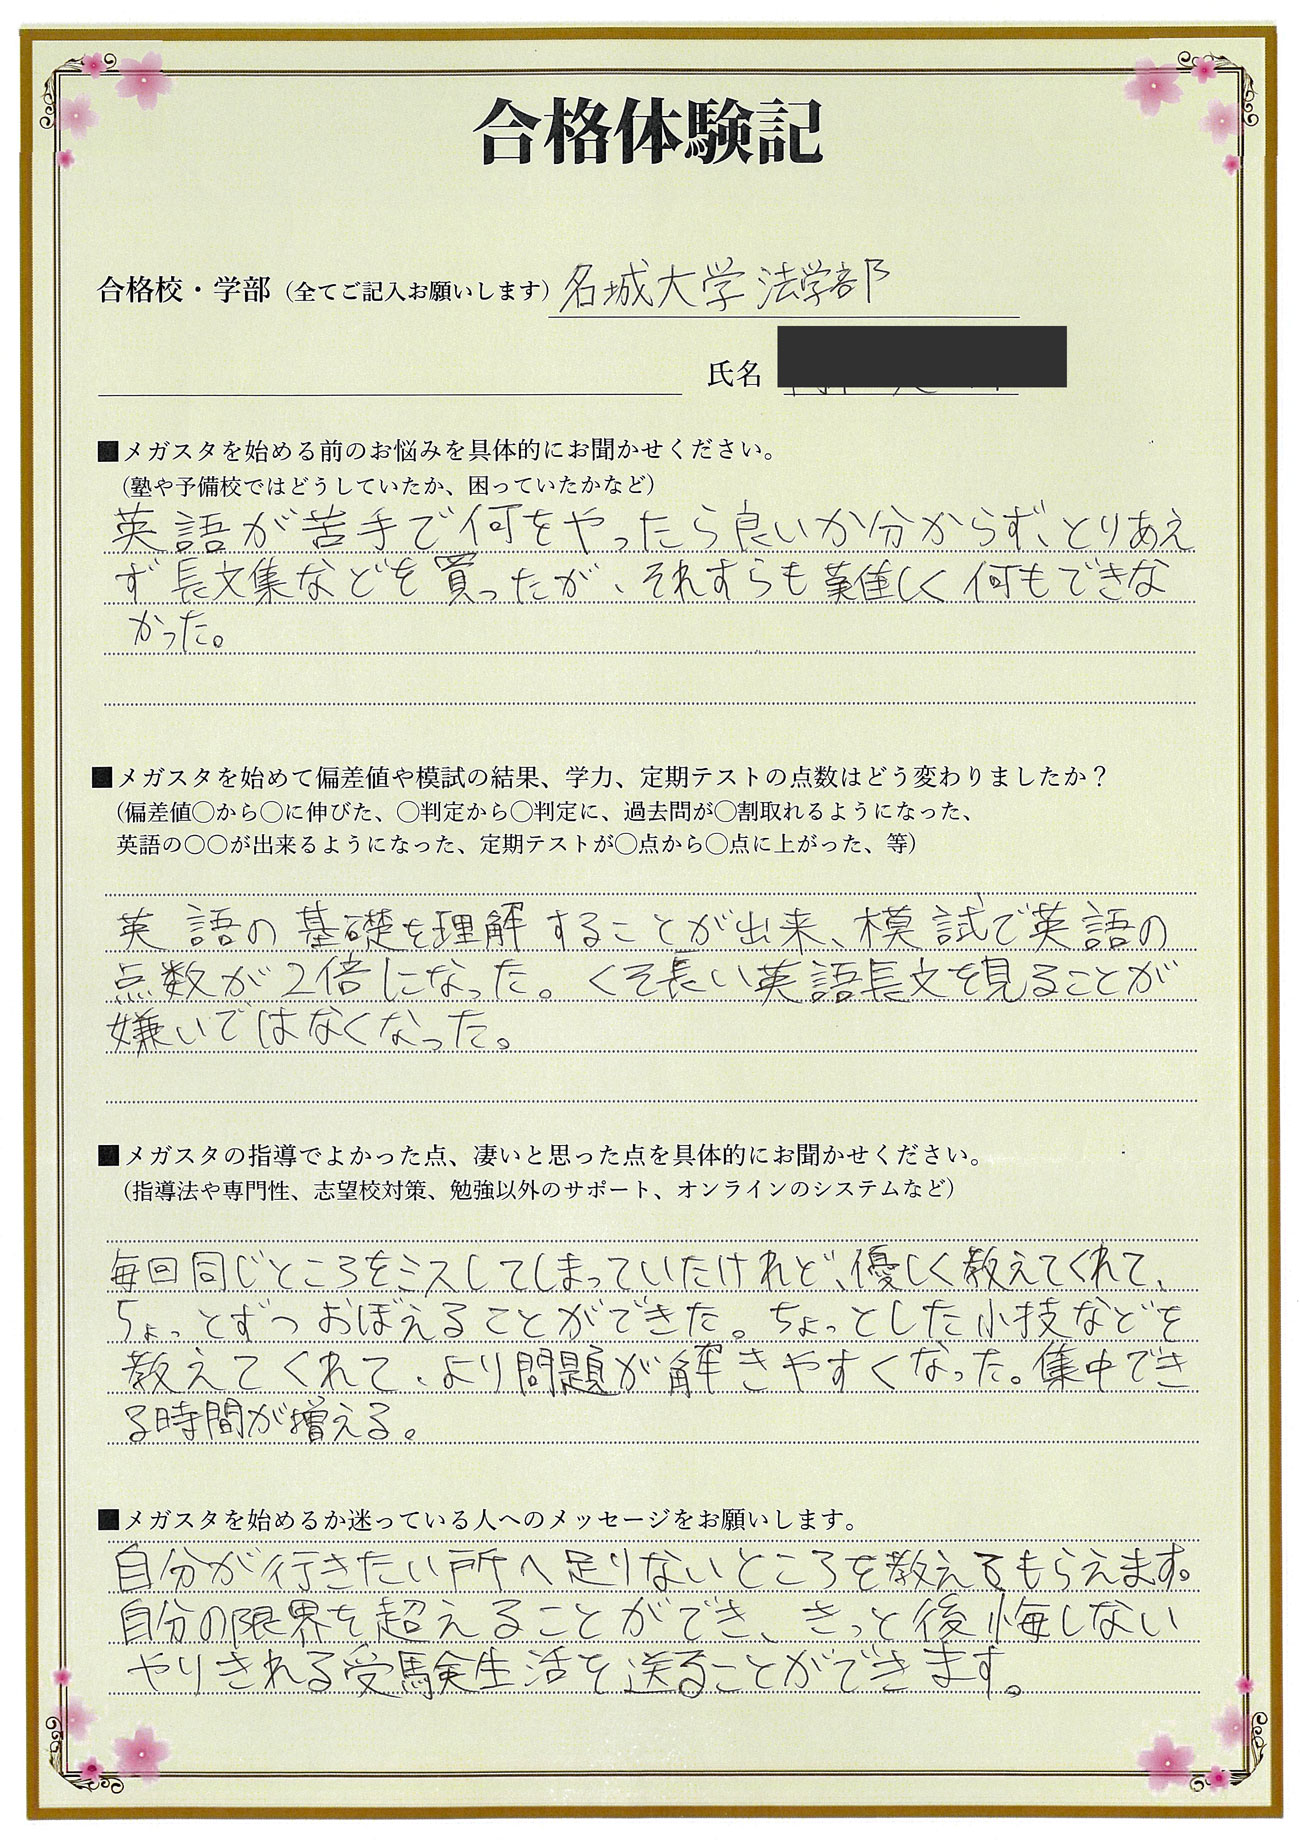 合格体験記
合格校・学部（全てご記入お願いします）名城大学 法学部
氏名
■メガスタを始める前のお悩みを具体的にお聞かせください。
（塾や予備校ではどうしていたか、困っていたかなど）
英語が苦手で何をやったら良いか分からず、とりあえ
ず長文集などを買ったが、それすらも難しく何もできな
かった。
■メガスタを始めて偏差値や模試の結果、学力、定期テストの点数はどう変わりましたか？
（偏差値〇から〇に伸びた、〇判定から〇判定に、過去問が〇割取れるようになった、
英語の〇〇が出来るようになった、定期テストが〇点から〇点に上がった、等）
英語の基礎を理解することが出来、模試で英語の
点数が2倍になった。くそ長い英語長文を見ることが
嫌いではなくなった。
■メガスタの指導でよかった点、凄いと思った点を具体的にお聞かせください。
（指導法や専門性、志望校対策、勉強以外のサポート、オンラインのシステムなど）
毎回同じところをミスしてしまっていたけれど、優しく教えてくれて、
ちょっとずつおぼえることができた。ちょっとした小技などを
教えてくれて、より問題が解きやすくなった。集中でき
る時間が増える。
■メガスタを始めるか迷っている人へのメッセージをお願いします。
自分が行きたい所へ足りないところを教えてもらえます。
自分の限界を超えることができ、きっと後悔しない
やりきれる受験生活を送ることができます。